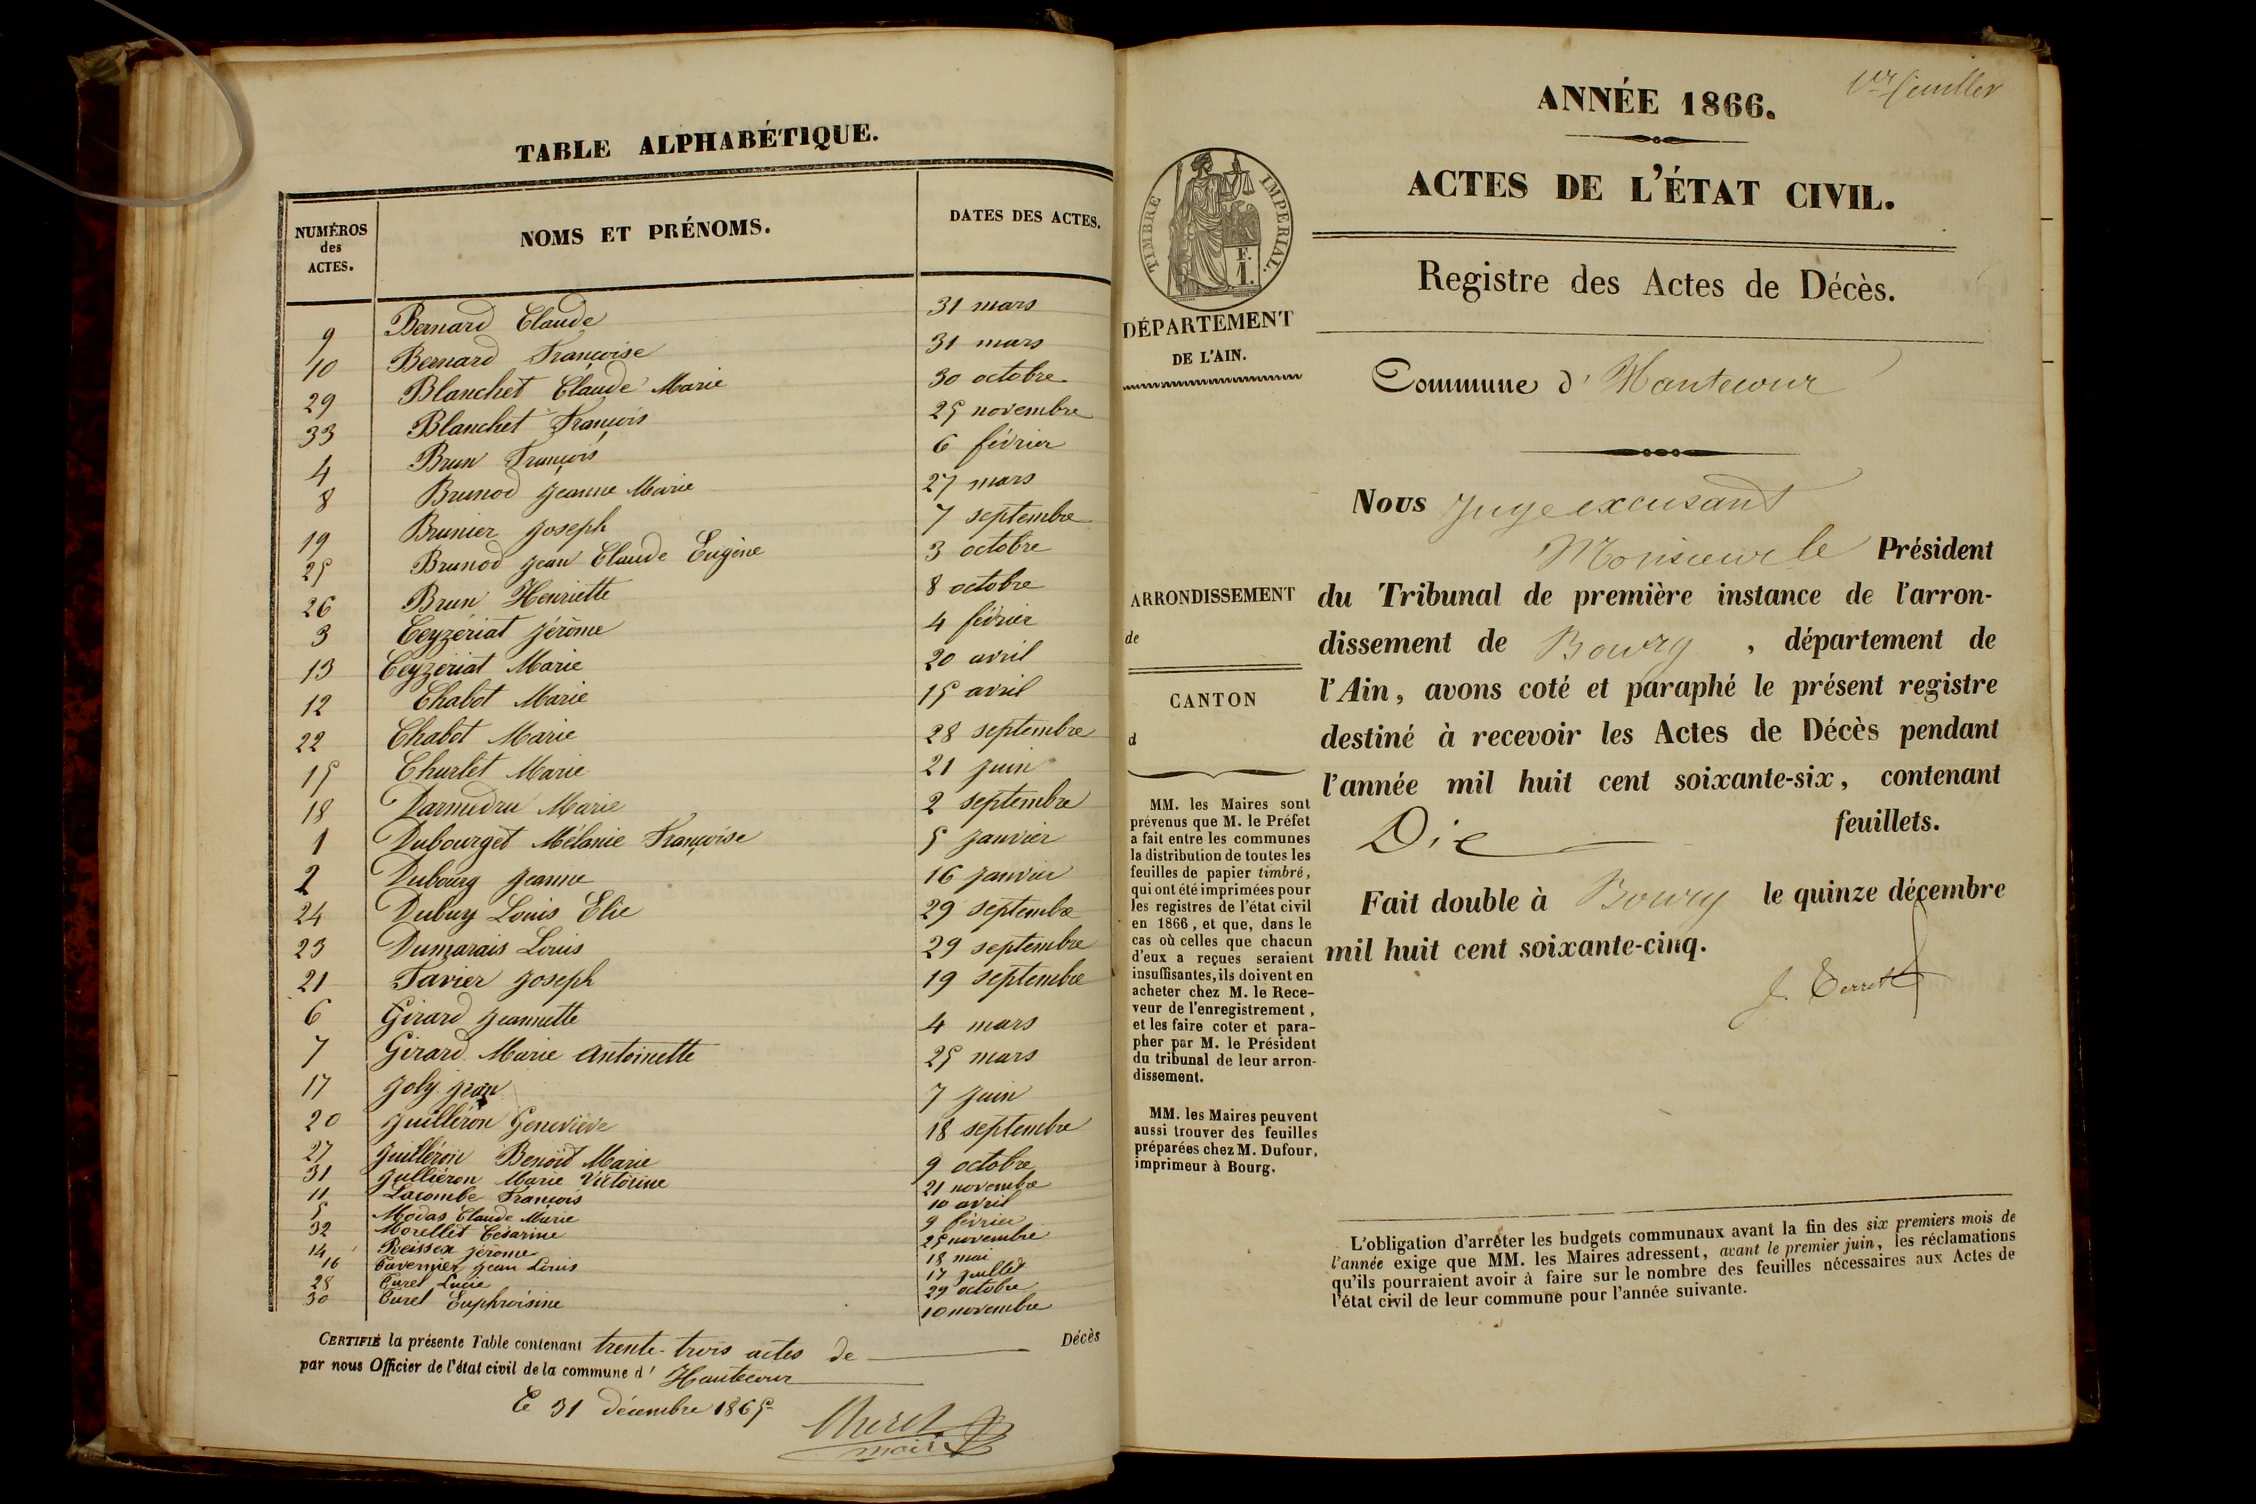 TABLE ALPHABÉTIQUE.
NUMÉROS des ACTES. NOMS ET PRÉNOMS. DATES DES ACTES.
9 Bernard Claude 31 mars
10 Bernard Françoise 31 mars
29 Blanchet Claude Marie 30 octobre
33 Blanchet François 25 novembre
4 Brun François 6 février
8 Brunod Jeanne Marie 27 mars
19 Brunier Joseph 7 septembre
25 Brunod Jean Claude Eugène 3 octobre
26 Brun Henriette 8 octobre
3 Ceyzériat Jérôme 4 février
13 Ceyzériat Marie 20 avril
12 Chabot Marie 15 avril
22 Chabot Marie 28 septembre
15 Churlet Marie 21 Juin
18 Darmedru Marie 2 septembre
1 Dubourget Mélanie Françoise 5 Janvier
2 Dubourg Jeanne 16 Janvier
24 Dubuy Louis Elie 29 septembre
23 Dumarais Louis 29 septembre
21 Favier Joseph 19 septembre
6 Girard Jeannette 4 mars
7 Girard Marie Antoinette 25 mars
17 Joly Jean 7 Juin
20 Juilléron Geneviève 18 septembre
27 Juilléron Benoit Marie 9 octobre
31 Julliéron Marie Victorine 21 novembre
11 Lacombe François 10 avril
5 Modas Claude Marie 9 février
32 Morellet Césarine 25 novembre
14 Jérôme 18 mai
16 Tavernier Jean Louis 17 Juillet
28 Turel Lucie 29 octobre
30 Turel Euphroisine 10 novembre
CERTIFIÉ la présente Table contenant trente-trois actes de Décès
par nous Officier de l'état civil de la commune d' Hautecour
Le 31 décembre 1865
maire
1er feuillet
ANNÉE 1866.
ACTES DE L'ÉTAT CIVIL.
TIMBRE IMPERIAL.
F.
1.
Registre des Actes de Décès.
DÉPARTEMENT
DE L'AIN.
Commune d' Hautecour
Nous Juge excusant
Monsieur le Président
du Tribunal de première instance de l'arron-
dissement de Bourg, département de
l'Ain, avons coté et paraphé le présent registre
destiné à recevoir les Actes de Décès pendant
l'année mil huit cent soixante-six, contenant
Dix feuillets.
Fait double à Bourg le quinze décembre
mil huit cent soixante-cinq.
ARRONDISSEMENT
de
CANTON
d
MM. les Maires sont
prévenus que M. le Préfet
a fait entre les communes
la distribution de toutes les
feuilles de papier timbré,
qui ont été imprimées pour
les registres de l'état civil
en 1866, et que, dans le
cas où celles que chacun
d'eux a reçues seraient
insuffisantes, ils doivent en
acheter chez M. le Rece-
veur de l'enregistrement,
et les faire coter et para-
pher par M. le Président
du tribunal de leur arron-
dissement.
MM. les Maires peuvent
aussi trouver des feuilles
préparées chez M. Dufour,
imprimeur à Bourg.
L'obligation d'arrêter les budgets communaux avant la fin des six premiers mois de
l'année exige que MM. les Maires adressent, avant le premier juin, les réclamations
qu'ils pourraient avoir à faire sur le nombre des feuilles nécessaires aux Actes de
l'état civil de leur commune pour l'année suivante.